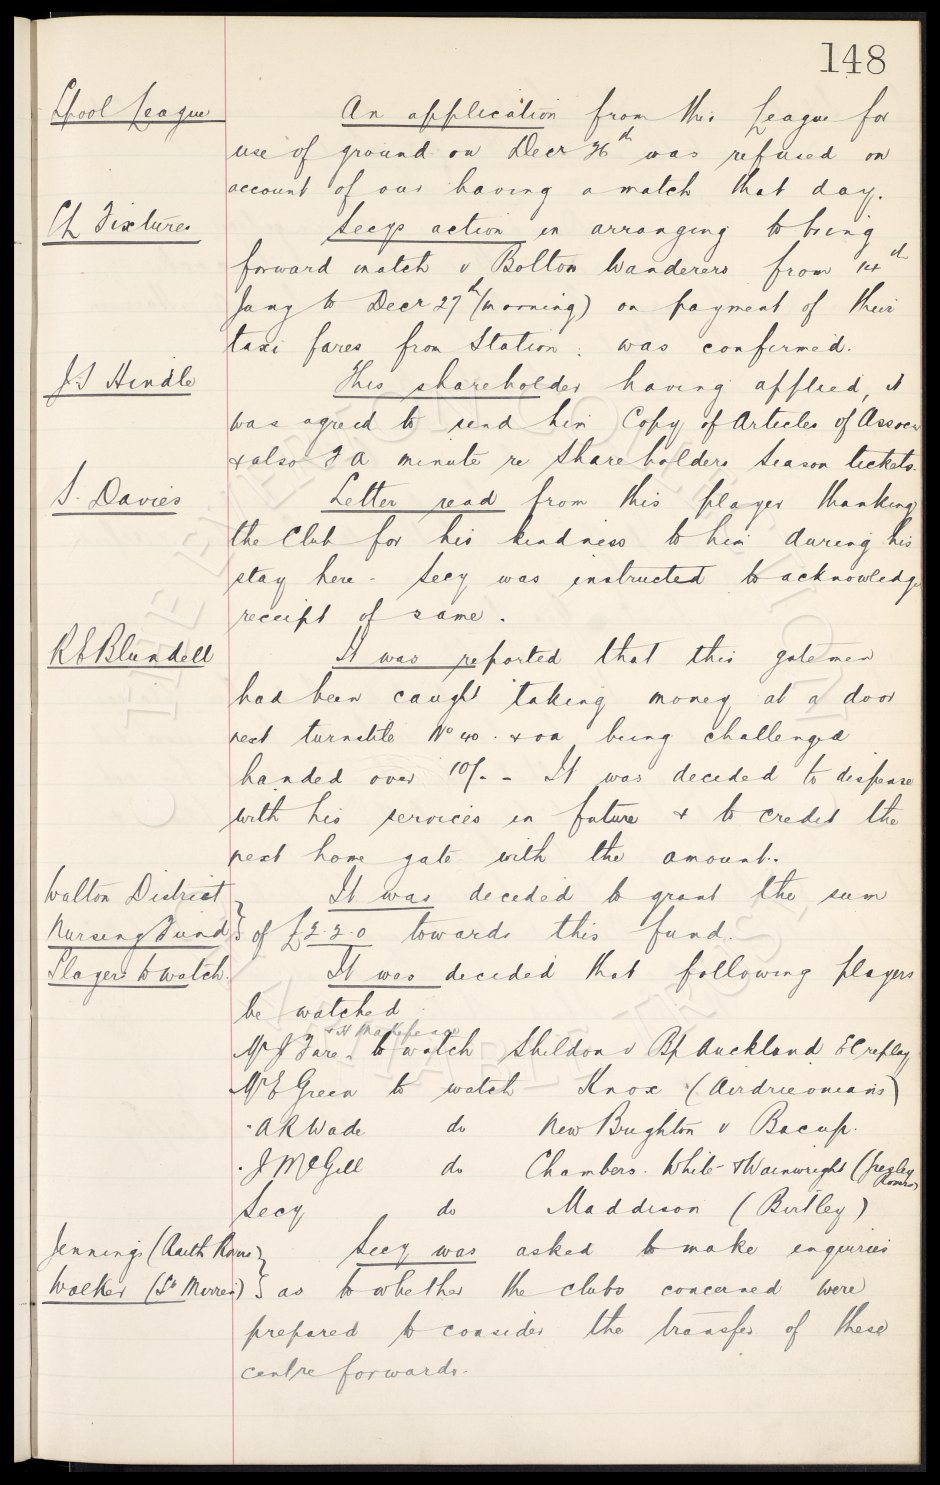 148
L'pool League
An application from this League for
use of ground on Decr 26th was refused on
account of our having a match that day.
CL Fixtures
Secys action in arranging to bring
forward match v Bolton Wanderers from 14th
Jany to Decr 27th (morning) on payment of their
taxi fares from Station. was confirmed.
J.S Hindle
This shareholder having applied, it
was agreed to send him Copy of Articles of Assocn
& also F A minute re Shareholders Season tickets.
S. Davies
Letter read from this player thanking
the Club for his kindness to him during his
stay here - Secy was instructed to acknowledge
receipt of same.
R E Blundell
It was reported that this gatemen
had been caught taking money at a door
next turnstile No 40. & on being challenged
handed over 10/- - It was decided to dispense
with his services in future & to credit the
next home gate with the amount.
Walton District
Nursing Fund
It was decided to grant the sum
of £2.2.0 towards this fund.
Players to watch.
It was decided that following players
be watched
& H Makepeace
Mr J Fare to watch Sheldon v Bp Auckland EC replay
Mr E Green to watch Knox (Airdrieonians)
" A R Wade do New Brighton v Bacup.
" J McGill do Chambers. White & Wainwright (Cresley Rovers)
Secy do Maddison (Birtley)
Jennings (Raith Rovers)
Walker (St Mirren)
Secy was asked to make enquiries
as to whether the clubs concerned were
prepared to consider the transfer of these
centre forwards.